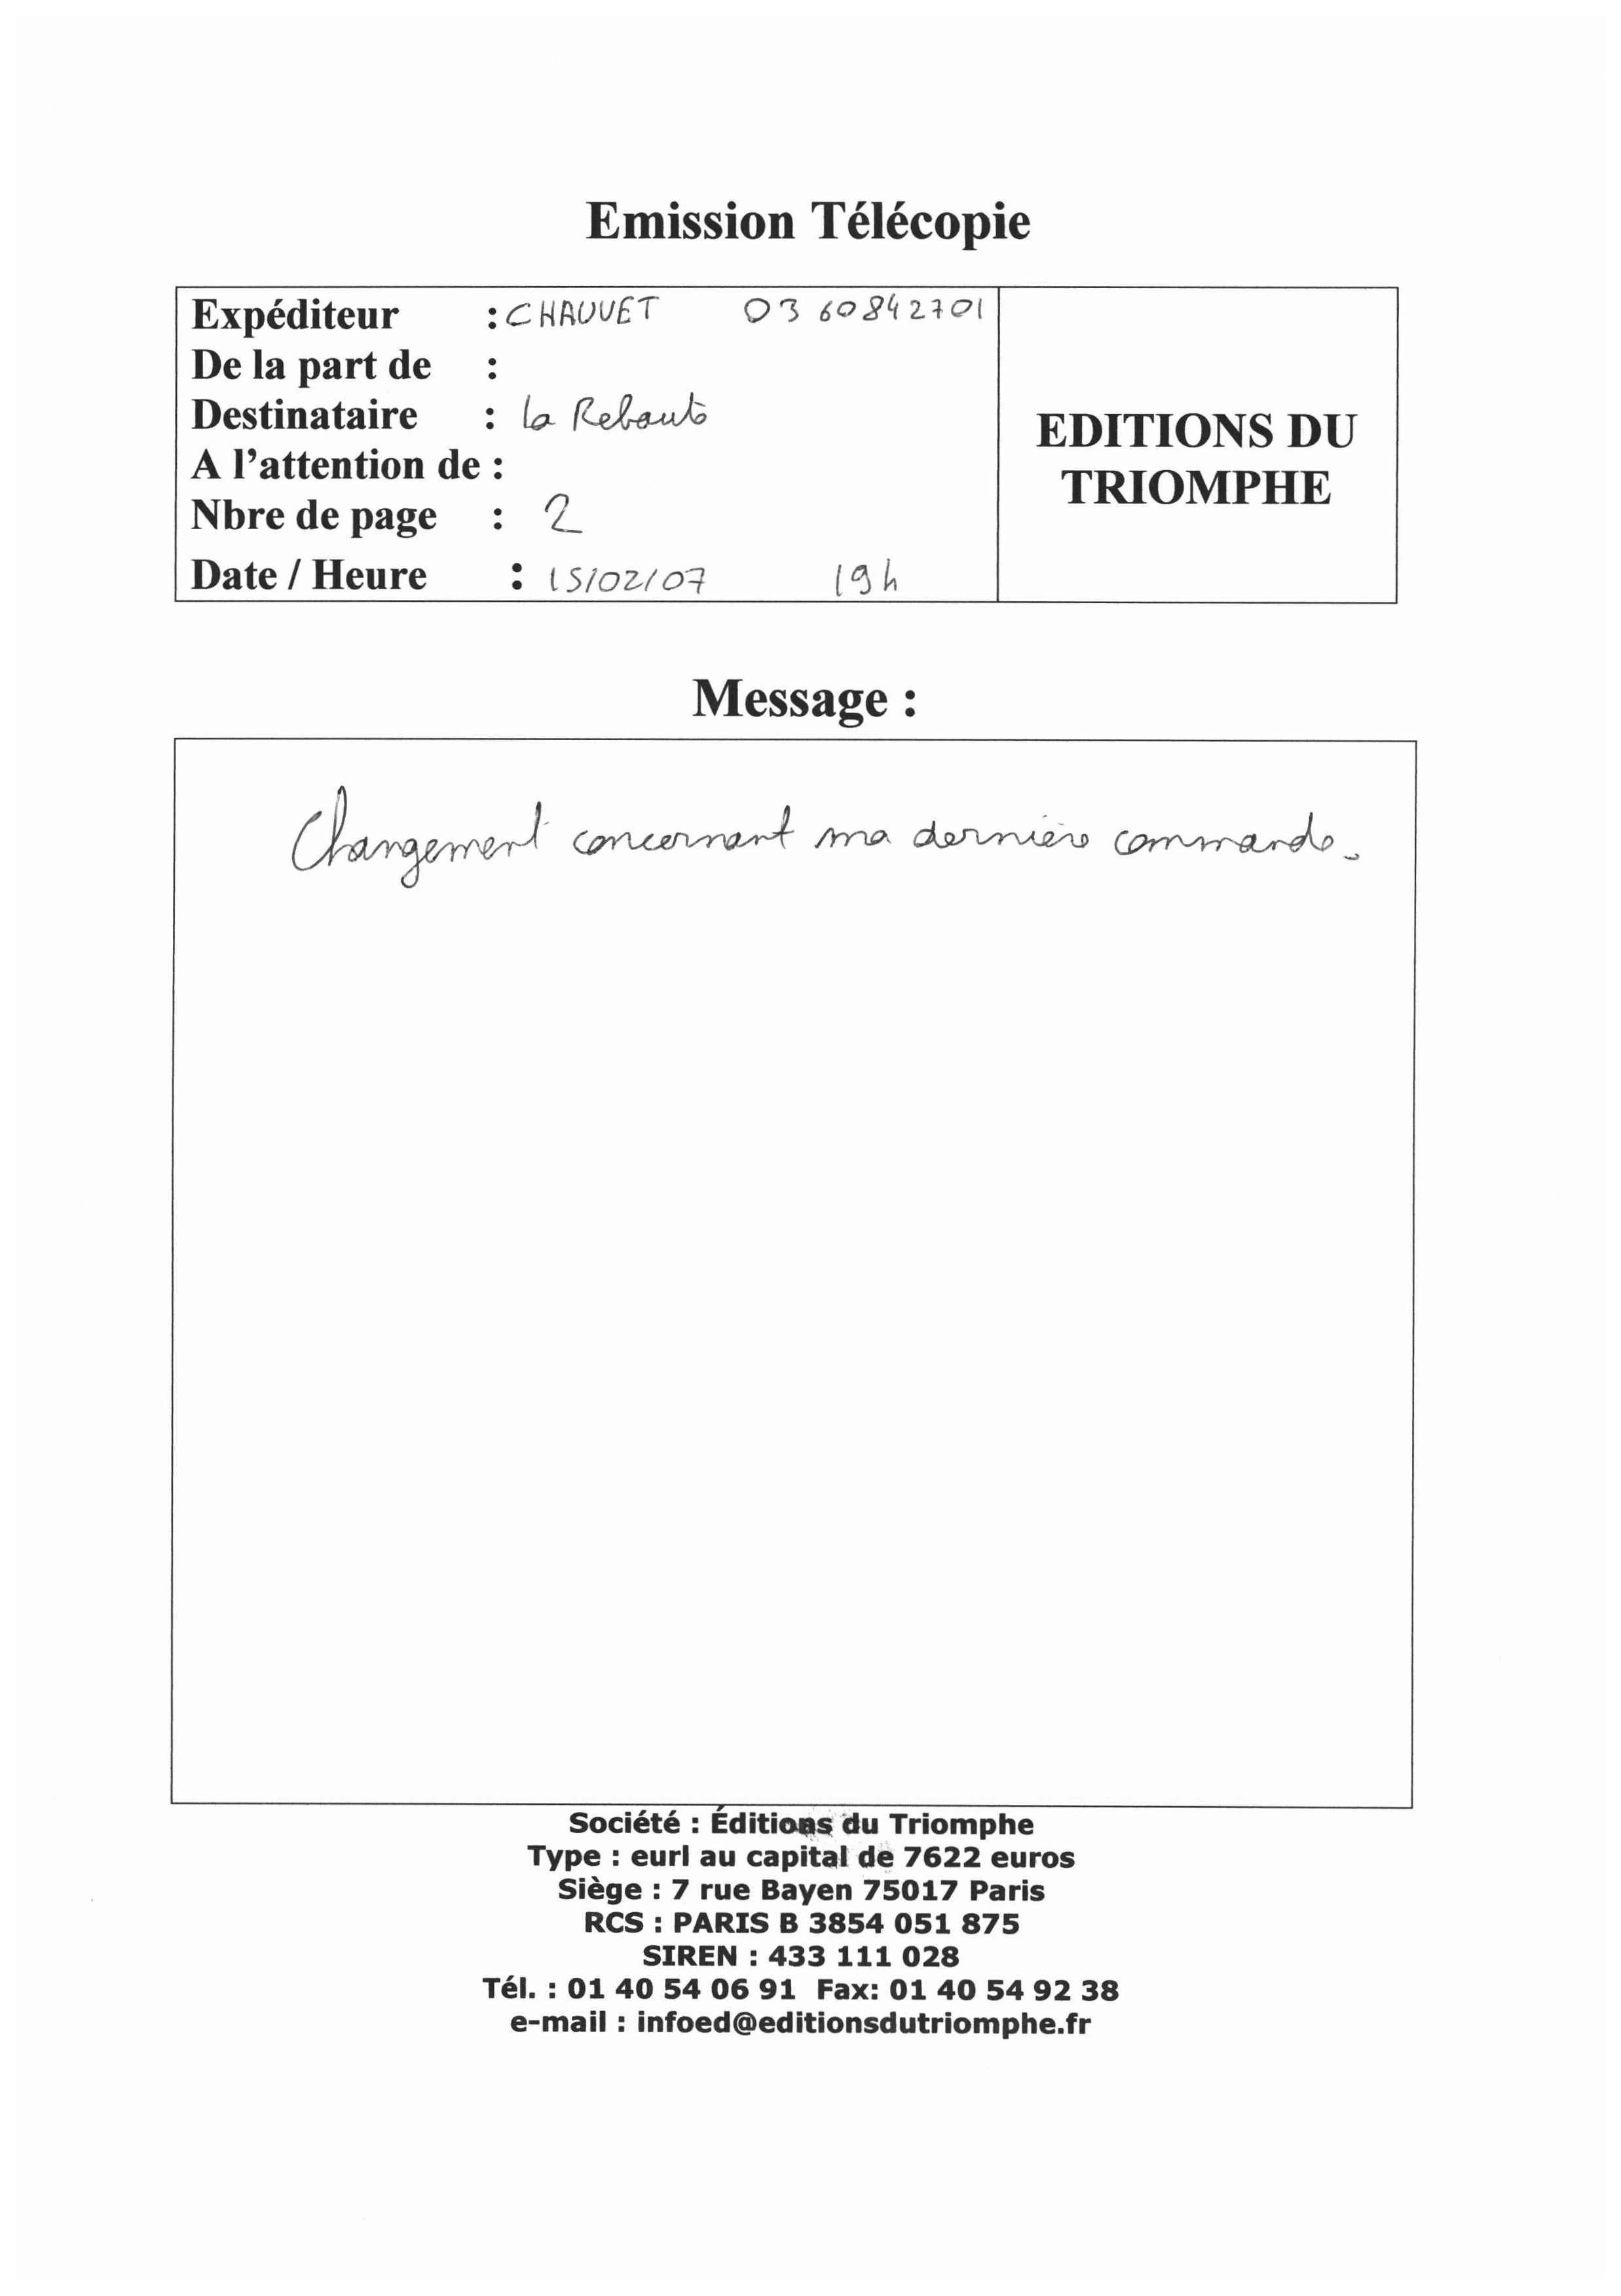 Emission Télécopie
Expéditeur : CHAUVET 03 60842701
De la part de :
Destinataire : la Reboute
A l'attention de :
Nbre de page : 2
Date / Heure : 15/02/07 19h
EDITIONS DU
TRIOMPHE
Message :
Changement concernant ma dernière commande.
Société : Éditions du Triomphe
Type : eurl au capital de 7622 euros
Siège : 7 rue Bayen 75017 Paris
RCS : PARIS B 3854 051 875
SIREN : 433 111 028
Tél. : 01 40 54 06 91 Fax: 01 40 54 92 38
e-mail : infoed@editionsdutriomphe.fr